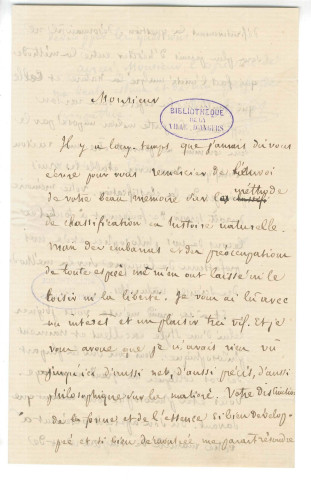 Monsieur
BIBLIOTHÈQUE
DE LA
VILLE D'ANGERS
Il y a longtemps que j'aurais dû vous
écrire pour vous remercier de l'envoi
de votre beau mémoire sur la méthode
de classification en histoire naturelle.
Mais des embarras et des preocupations
de toute espèce ne m'en ont laissé ni le
loisir ni la liberté. Je vous ai lû avec
un interet et un plaisir très vif. Et je
vous avoue que je n'avais rien vu
jusqu'ici d'aussi net, d'aussi précis, d'aussi
philosophique sur la matière. Votre distinction
de la forme et de l'essence si bien develop-
pée et si bien demontrée, me parait résoudre